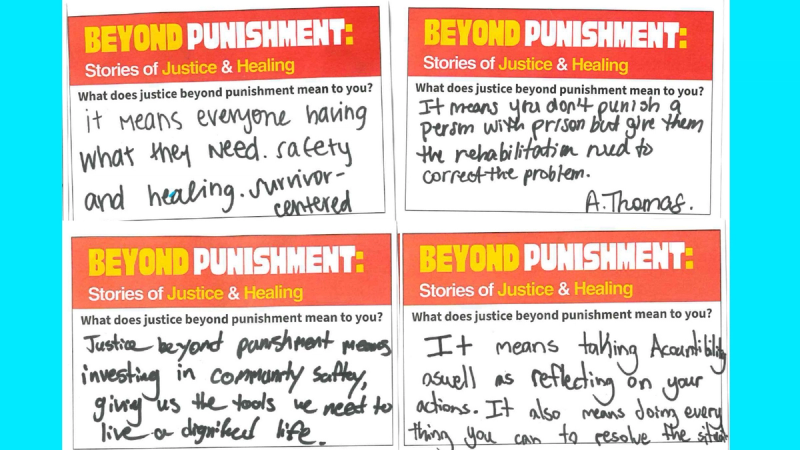 BEYOND PUNISHMENT:
Stories of Justice & Healing
What does justice beyond punishment mean to you?
it means everyone having
what they need. safety
and healing. survivor-
centered
BEYOND PUNISHMENT:
Stories of Justice & Healing
What does justice beyond punishment mean to you?
It means you don't punish a
person with prison but give them
the rehabilitation need to
correct the problem.
A. Thomas.
BEYOND PUNISHMENT:
Stories of Justice & Healing
What does justice beyond punishment mean to you?
Justice beyond punishment means
investing in community saftey,
giving us the tools we need to
live a dignified life.
BEYOND PUNISHMENT:
Stories of Justice & Healing
What does justice beyond punishment mean to you?
It means taking Accountibility
aswell as reflecting on your
actions. It also means doing every
thing you can to resolve the